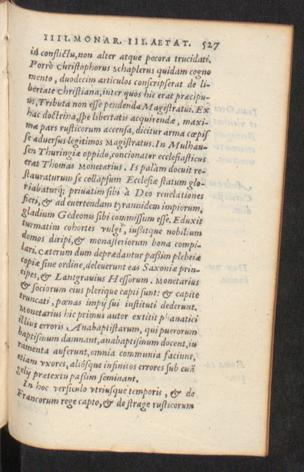 IIII. MONAR. III. AETAT. 527
in conflictu, non alter atque pecora trucidati.
Porrò Christophorus Schaplerus quidam cogno
mento, duodecim articulos conscripserat de li-
bertate Christiana, inter quos hic erat præcipu-
us, Tributa non esse pendenda Magistratui. Ex
hac doctrina, spe libertatis acquirendæ, maxi-
ma pars rusticorum accensa, dicitur arma cœpis
se aduersus legitimos Magistratus. In Mulhau-
sen Turingiæ oppido, concionator ecclesiasticus
erat Thomas Monetarius. Is palam docuit re-
stauraturum se collapsum Ecclesiæ statum glo-
riabaturq; priuatim sibi à Deo reuelationes
fieri, & ad euertendam tyrannidem impiorum,
gladium Gedeonis sibi commissum esse. Eduxit
turmatim cohortes vulgi, iussitque nobilium
domos diripi, & monasteriorum bona compi-
lari. cæterum dum deprædantur passim plebeiæ
copiæ sine ordine, deleuerunt eas Saxoniæ prin-
cipes, & Lantgrauius Hessorum. Monetarius
& sociorum eius plerique capti sunt: & capite
truncati, pœnas impij sui instituti dederunt.
Monetarius hic primus autor extitit phanatici
illius erroris Anabaptistarum, qui puerorum
baptismum damnant, anabaptismum docent, iu
ramenta auferunt, omnia communia faciunt,
etiam vxores, aliosque infinitos errores sub euã
gelij prætextu passim seminant.
In hoc versiculo vtriusque temporis, & de
Francorum rege capto, & de strage rusticorum